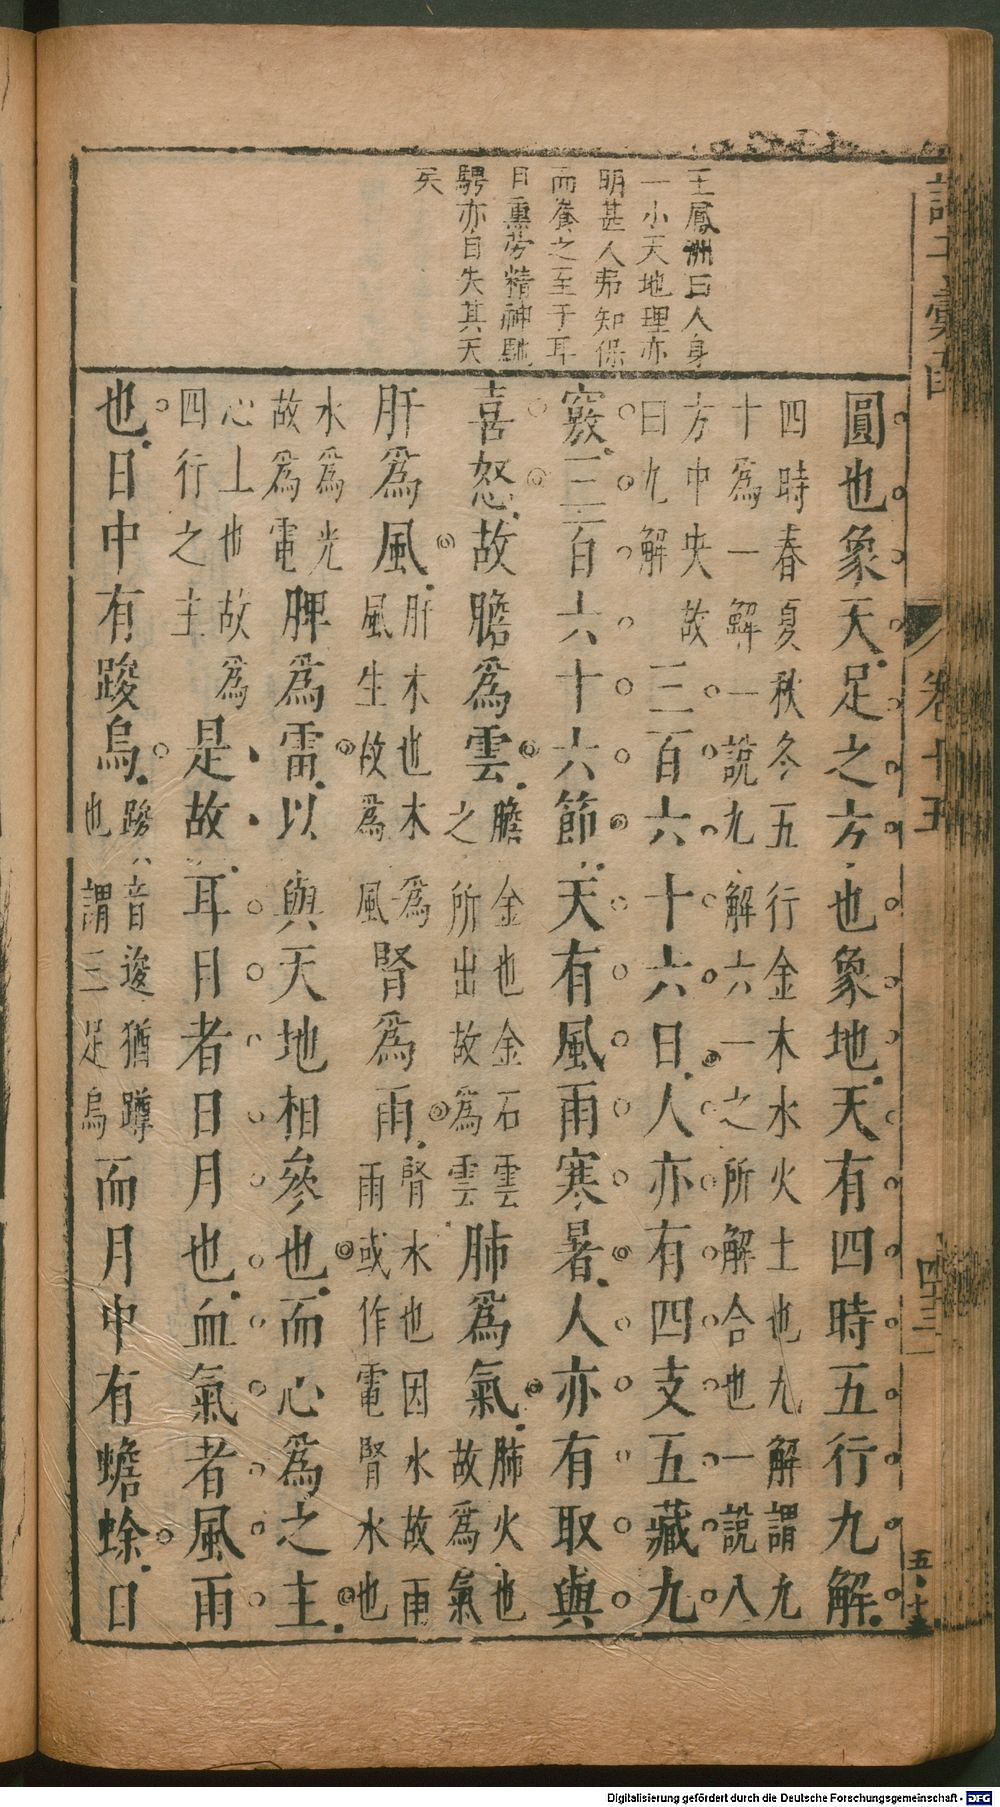 王鳳洲曰人身
一小天地理亦
明甚人弗知保
而養之至于耳
目熏勞精神馳
騁亦自失其天
矣
圓也象天足之方也象地天有四時五行九解
四時春夏秋冬五行金木水火土也九解謂九
十為一解一說九解六一之所解合也一說八
方中央故
曰九解
三百六十六日人亦有四支五藏九
竅三百六十六節天有風雨寒暑人亦有取與
喜怒故膽為雲
膽金也金石雲
之所出故為雲
肺為氣
肺火也
故為氣
肝為風
肝木也木為
風生故為風
腎為雨
腎水也因水故雨
雨或作電腎水也
水為光
故為電
脾為雷以與天地相參也而心為之主
心土也故為
四行之主
是故耳目者日月也血氣者風雨
也日中有踆烏
踆音逡猶蹲
也謂三足烏
而月中有蟾蜍日
卷十五
四十三
五十三
Digitalisierung gefördert durch die Deutsche Forschungsgemeinschaft - DFG